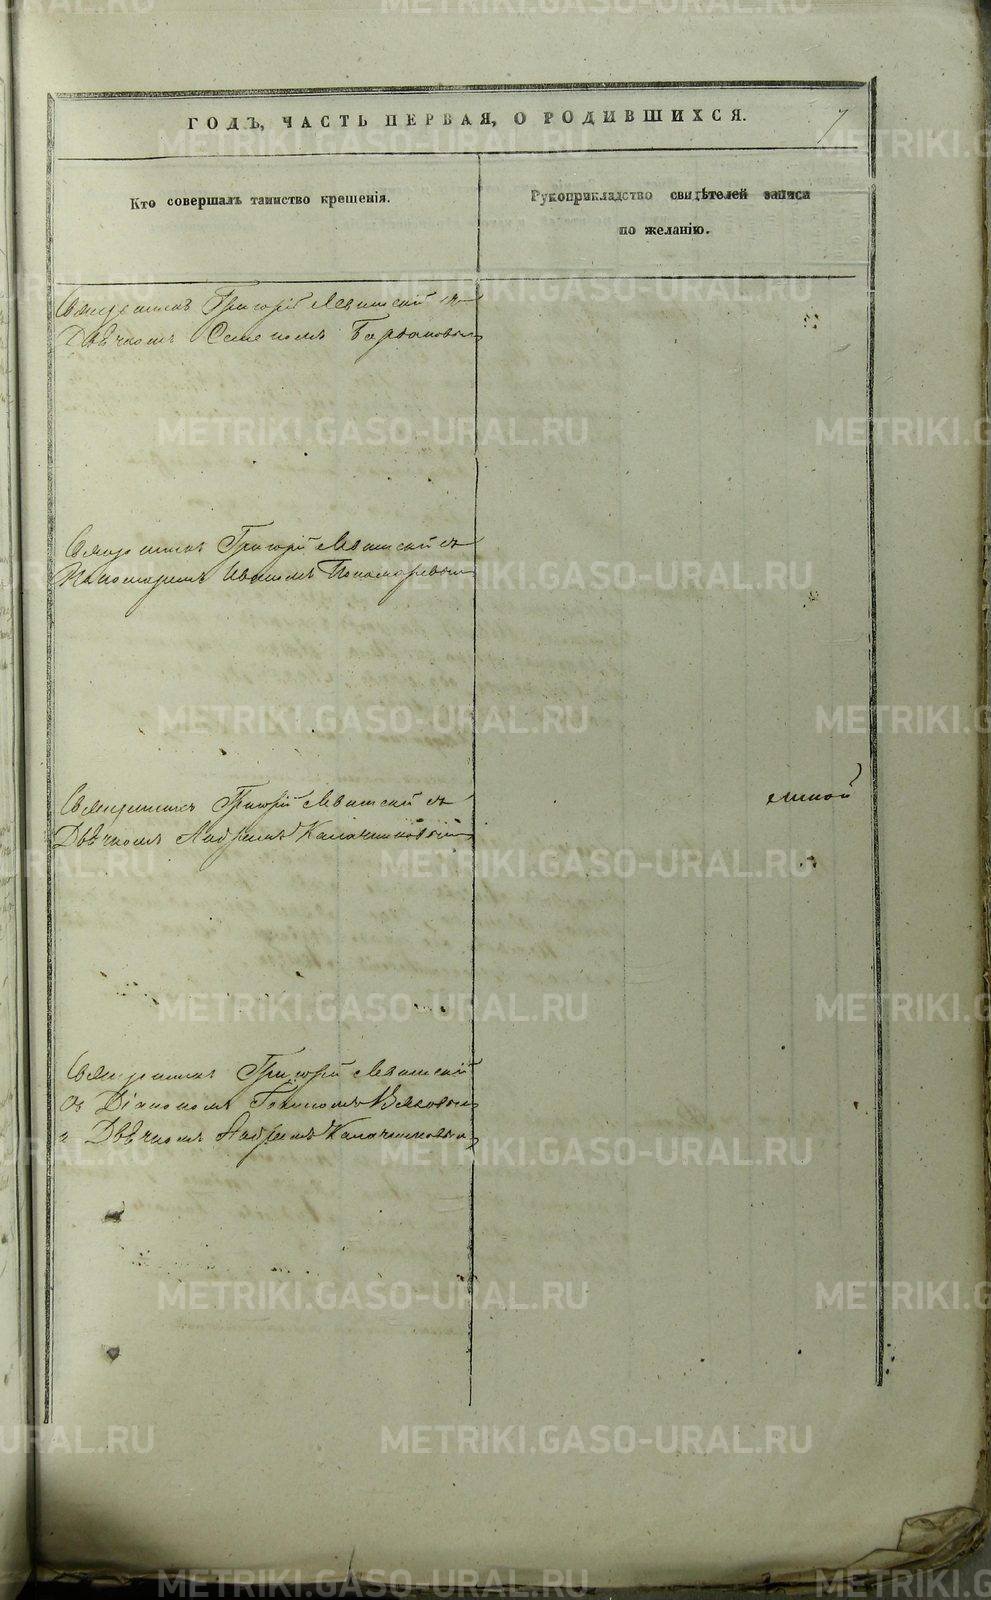 ГОДЪ, ЧАСТЬ ПЕРВАЯ, О РОДИВШИХСЯ.
7
Кто совершалъ таинство крещенія.
Рукоприкладство свидѣтелей записи
по желанію.
Священникъ Григорій Левитской съ
Дьячкомъ Семеномъ
Священникъ Григорій Левитской съ
Пономаремъ Иваномъ Пономаревымъ
Священникъ Григорій Левитской съ
Дьячкомъ Андреемъ Калачниковымъ
Священникъ Григорій Левитской
съ Діакономъ
и Дьячкомъ Андреемъ Калачниковымъ
METRIKI.GASO-URAL.RU